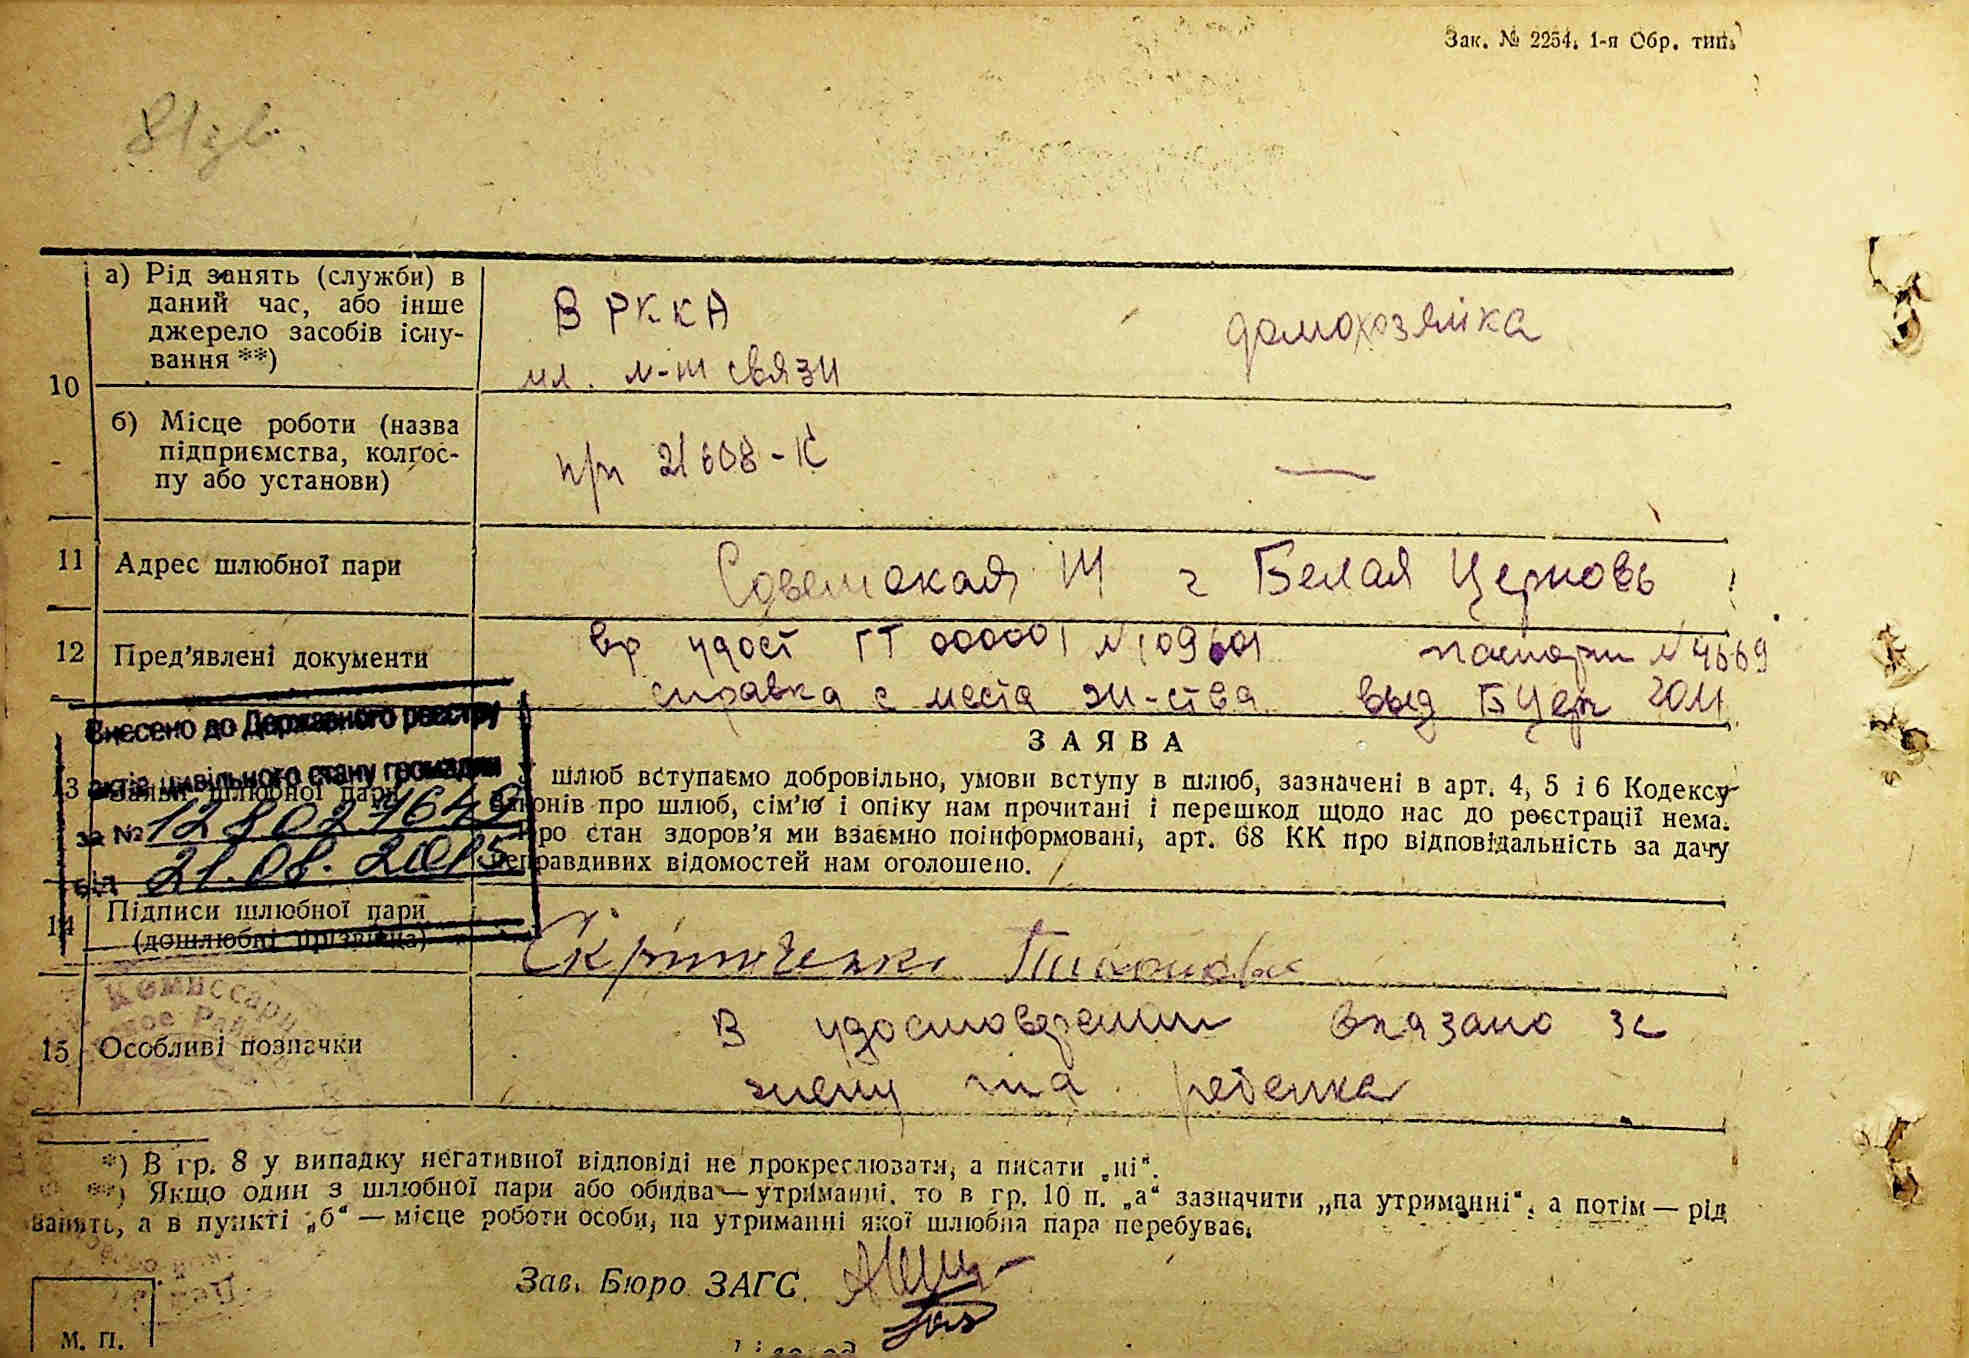 Зак. № 2254. 1-я Обр. тип.
10
а) Рід занять (служби) в
даний час, або інше
джерело засобів існу-
вання **)
В РККА
мл. л-т связи
домохозяйка
б) Місце роботи (назва
підприємства, колгос-
пу або установи)
п/п 21608-К
—
11 Адрес шлюбної пари
Советская г Белая Церковь
12 Пред'явлені документи
вр удост ГТ 000001 № 109601 паспорт № 4669
справка с места ж-ства выд БЦерк
Внесено до Державного реєстру
актів цивільного стану громадян
за №
від 21.08.2015
13 Заяви шлюбної пари
ЗАЯВА
У шлюб вступаємо добровільно, умови вступу в шлюб, зазначені в арт. 4, 5 і 6 Кодексу
законів про шлюб, сім'ю і опіку нам прочитані і перешкод щодо нас до реєстрації нема.
Про стан здоров'я ми взаємно поінформовані, арт. 68 КК про відповідальність за дачу
неправдивих відомостей нам оголошено.
14 Підписи шлюбної пари
(дошлюбні прізвища)
15 Особливі позначки
В удостоверении вказано за
жену та ребенка
*) В гр. 8 у випадку негативної відповіді не прокреслювати, а писати „ні“.
**) Якщо один з шлюбної пари або обидва — утриманці, то в гр. 10 п. „а“ зазначити „на утриманні“, а потім — рід
занять, а в пункті „б“ — місце роботи особи, на утриманні якої шлюбна пара перебуває.
Зав. Бюро ЗАГС
М. П.